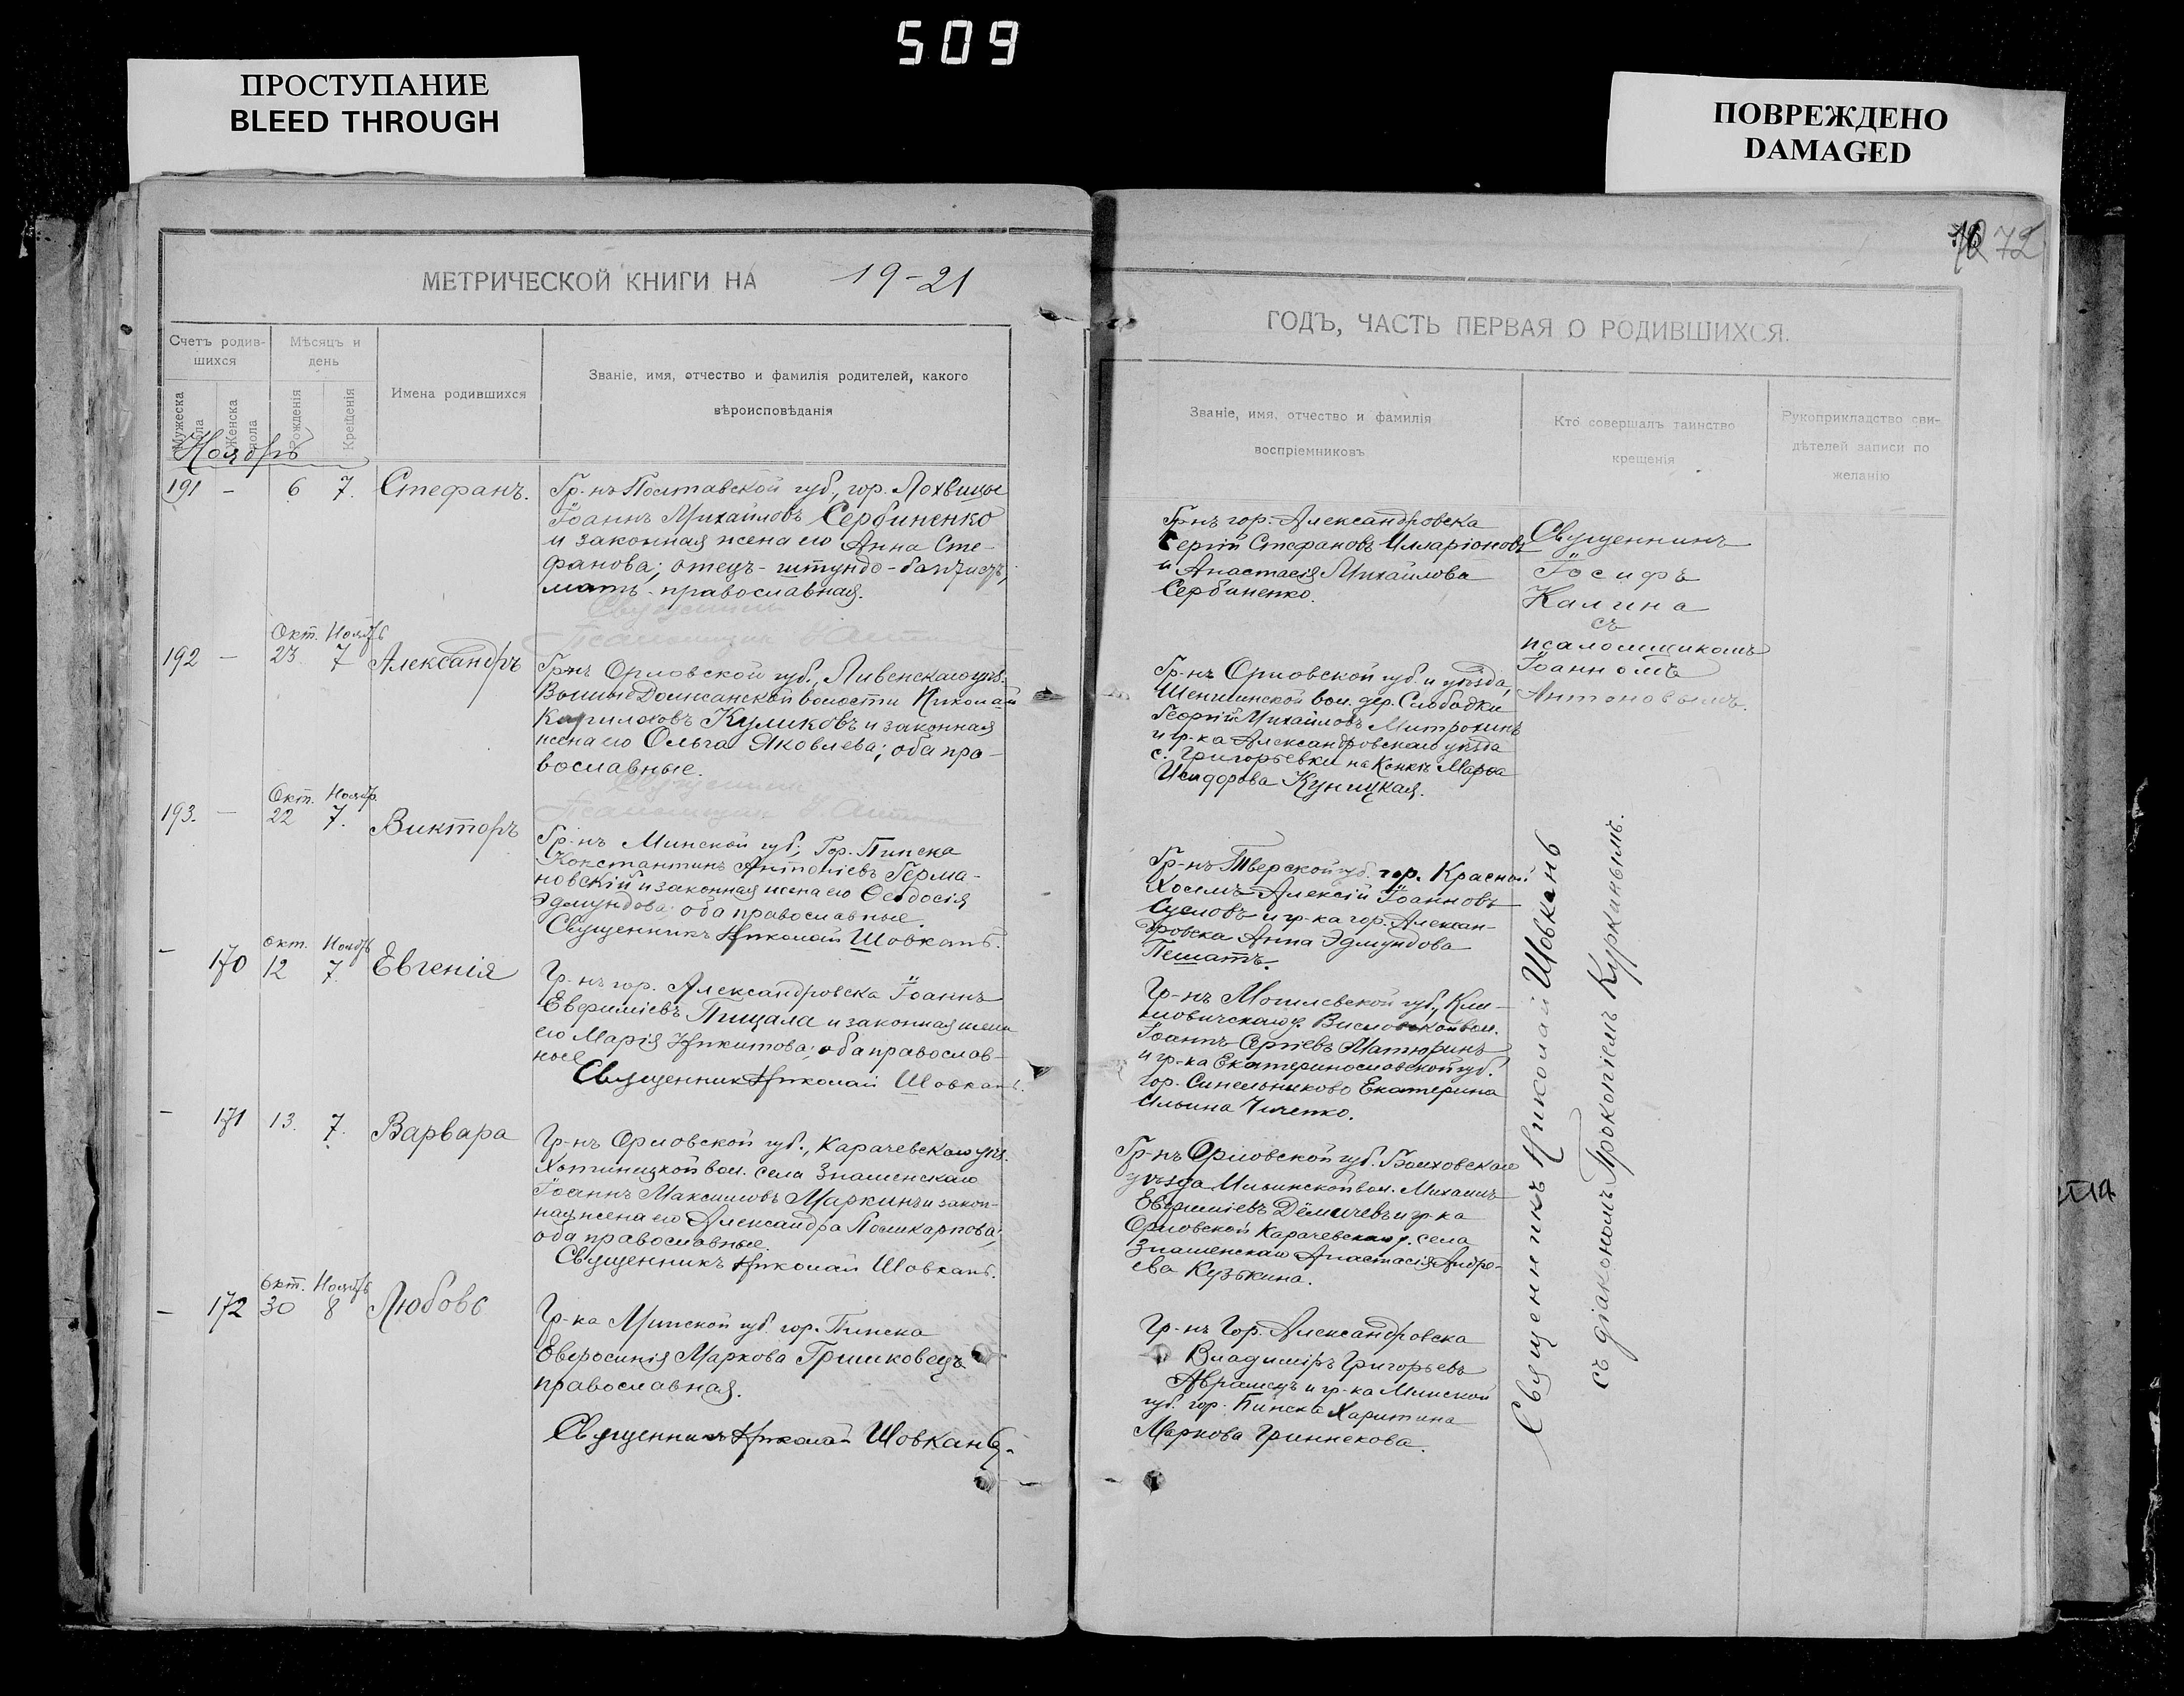 509
ПРОСТУПАНИЕ
BLEED THROUGH
ПОВРЕЖДЕНО
DAMAGED
МЕТРИЧЕСКОЙ КНИГИ НА 19-21
Счетъ родив-
шихся
Мѣсяцъ и
день
Имена родившихся
Званіе, имя, отчество и фамилія родителей, какого
вѣроисповѣданія
Мужеска пола
Женска пола
Рожденія
Крещенія
Ноябрь
191 - 6 7. Стефанъ.
Гр-нъ Полтавской губ., гор. Лохвицы
Іоаннъ Михайловъ Сербиненко
и законная жена его Анна Сте-
фанова; отецъ - штундо-баптистъ,
мать - православная.
Окт. Ноябрь
192 - 23 7 Александръ
Гр-нъ Орловской губ., Ливенскаго уѣз.
Волынь Должанской волости Николай
Кирилловъ Куликовъ и законная
жена его Ольга Яковлева; оба пра-
вославные.
Окт. Ноябр.
193. - 22 7. Викторъ
Гр-нъ Минской губ., Гор. Пинска
Константинъ Антоніевъ Герма-
новскій и законная жена его Ѳеодосія
Эдмундова; оба православные.
Священникъ Николай Шовкань.
Окт. Ноябрь
- 170 12 7. Евгенія
Гр-нъ гор. Александровска Іоаннъ
Евфиміевъ Пищала и законная жена
его Марія Никитова; оба православ-
ные
Священник Николай Шовкань.
- 171 13. 7. Варвара
Гр-нъ Орловской губ., Карачевскаго уѣз.
Хотинецкой вол. села Знаменскаго
Іоаннъ Максимовъ Маркинъ и закон-
ная жена его Александра Поликарпова;
оба православные.
Священникъ Николай Шовкань.
Окт. Ноябрь
- 172 30 8 Любовь
Гр-ка Минской губ. гор. Пинска
Евфросинія Маркова Гришковецъ
православная.
Священникъ Николай Шовкань.
72
ГОДЪ, ЧАСТЬ ПЕРВАЯ О РОДИВШИХСЯ.
Званіе, имя, отчество и фамилія
воспріемниковъ
Кто совершалъ таинство
крещенія
Рукоприкладство сви-
дѣтелей записи по
желанію
Гр-нъ гор. Александровска
Сергій Стефановъ Илларіоновъ
и Анастасія Михайлова
Сербиненко.
Священникъ
Іосифъ
Калина
съ
псаломщикомъ
Іоанномъ
Антоновымъ.
Гр-нъ Орловской губ. и уѣзда,
вол. дер. Слободки
Георгій Михайловъ Митрохинъ
и гр-ка Александровскаго уѣзда
с. Григорьевки на Конкѣ Марѳа
Исидорова Куницкая.
Гр-нъ Тверской губ. гор. Красной
Холмъ Алексій Іоанновъ
Сусловъ и гр-ка гор. Алексан-
дровска Анна Эдмундова
Пешатъ.
Гр-нъ Могилевской губ., Кли-
мовичскаго у. вол.
Іоаннъ Сергіевъ Матюринъ
и гр-ка Екатеринославской губ.
гор. Синельниково Екатерина
Ильина
Гр-нъ Орловской губ. Болховскаго
уѣзда Ильинской вол. Михаилъ
Евфиміевъ Дёмичевъ и гр-ка
Орловской Карачевскаго у. села
Знаменскаго Анастасія Андре-
ева Кузькина.
Гр-нъ Гор. Александровска
Владиміръ Григорьевъ
Аврамецъ и гр-ка Минской
губ. гор. Пинска Харитина
Маркова Гриннекова.
Священникъ Николай Шовкань
съ діакономъ Прокопіемъ Куркинымъ.